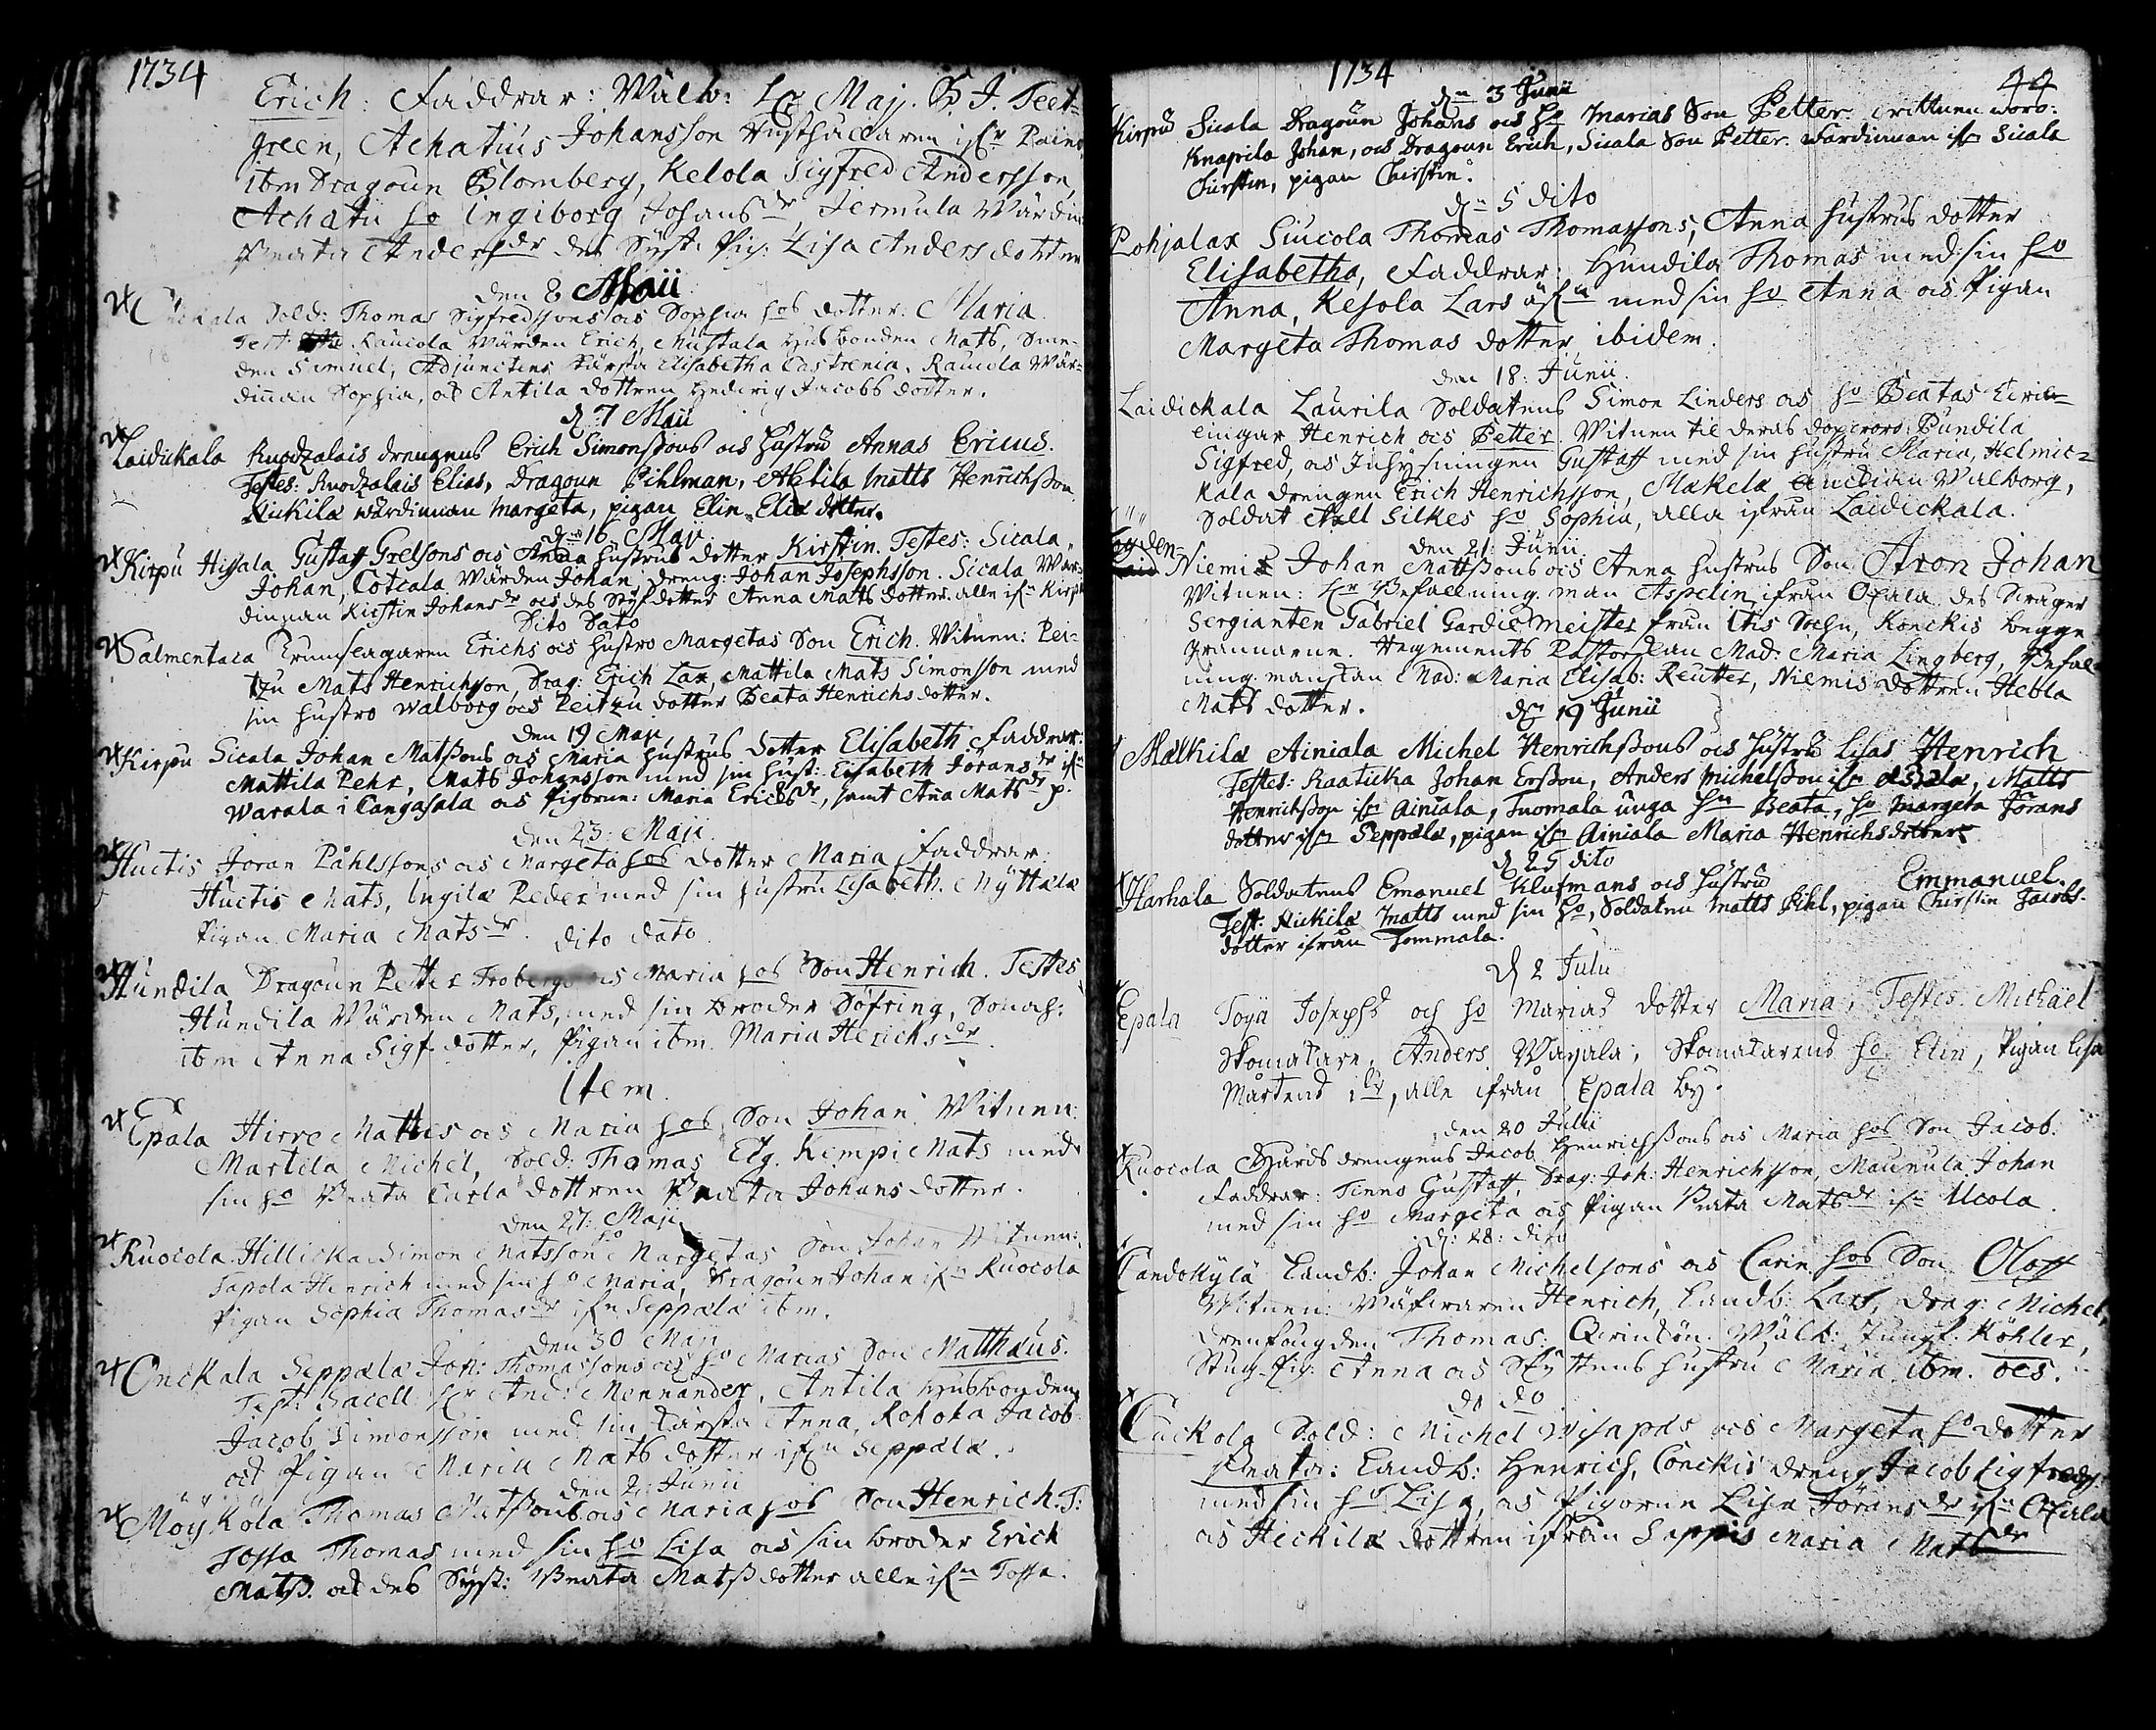 1734
Erich: Faddrar: Wälb: Hr Maj. G J. Teet-
green, Achatius Johansson Husshållaren ifr
ibm Dragoun Blomberg, Kelola Sigfred Andersson,
Achatii ho Ingiborg Johansdr Jermula Wärdin
Beata Andersdr des Syst. Pig: Lisa Anders dotter
den 8 Maii
Sold: Thomas Sigfredssons och Sophia hos dotter: Maria.
Test: Raucola Wärden Erich, Mustala Husbonden Mats, Sme-
den Simuel, Adjunctens kärsta Elisabetha Castrenia, Raucola Wär-
dinnan Sophia, och Antila dottren Hedevig Jacobs dotter.
d. 7 Maii
Laidickala Ruodzalais drengens Erich Simonssons och hustru Annas Ericus.
Testes: Ruodzalais Elias, Dragoun Pihlman, Alstila Matts Henrichsson
Nickilä wärdinnan Margeta, pigan Elin Eliæ dotter.
dn 16 Maji
Kirpu Hissala Gustaff Grelsons och Anna hustrus dotter Kirstin. Testes: Sicala
Johan, Coteala Wärden Johan, dreng: Johan Josephsson. Sicala Wär-
dinnan Kirstin Johansdr och des Styfdotter Anna Mats dotter. alle ifn Kirpu
Dito Dato
Salmentaca Erichs och hustro Margetas Son Erich. Witnen: Pei-
tzu Mats Henrichsson, Drag: Erich Lax, Mattila Mats Simonsson med
sin hustro Walborg och Peitzu dotter Beata Henrichsdotter.
den 19 Maji
Kirpu Sicala Johan Matssons och Maria hustrus dotter Elisabeth. Faddrar:
Mattila Pehr, Mats Johansson med sin hust: Elisabeth Joransdr ifn
Warala i Cangasala och Pigorne: Maria Ericsdr, samt Anna Matsdr p.
den 23: Maji
Huctis Joran Påhlssons och Margeta hos dotter Maria Faddrar:
Huctis Mats, Ingila Peder med sin hustru Lisabeth. Nyttälä
Pigan Maria Matsdr.
dito dato.
Hundila Dragoun Petter Frobergs och Maria hos Son Henrich. Testes
Hundila Wärden Mats, med sin broder Söfring, Sonah:
ibm Anna Sigf. dotter, Pigan ibm. Maria Hericksdr.
Item.
Epala Hirre Mattis och Maria hos Son Johan. Witnen:
Martila Michel, Sold: Thomas Elg. Kempi Mats med
sin ho Beata Curla dottren Beata Johansdotter.
den 27: Maji
Ruocola Hillicka Simon Matsson ho Margetas Son Johan Witnen:
Sapola Henrich med sin ho Maria, Dragoun Johan ifn Ruocola
Pigan Sophia Thomasdr ifn Seppälä ibm.
den 30 Maji
Onckala Seppälä Joh: Thomassons och ho Marias Son Matthæus.
Test: Sacell Hr And: Mennander, Antila Husbonden
Jacob Simonsson med sin kärsta Anna, Rokoka Jacob
och Pigan Maria Mats dotter ifrn Seppälä.
den 2 Junii
Möykölä Thomas Matssons och Maria hos Son Henrich. T:
Tossa Thomas med sin ho Lisa och sin broder Erich
Matss. och des Syst: Beata Matssdotter alle ifn Tossa.
1734
44
dn 3 Junii
Kirpu Sicala Dragoun Johans och ho Marias Son Petter. wittnen woro:
Knapila Johan, och Dragoun Erich, Sicala Son Petter. wärdinnan ifr Sicala
Chirstin, pigan Chirstin.
dn 5 dito
Pohjalax Siucola Thomas Thomassons, Anna hustrus dotter
Elisabetha, Faddrar: Hundila Thomas med sin ho
Anna, Kesola Lars med sin ho Anna och Pigan
Margeta Thomas dotter ibidem.
den 18: Junii.
Laidickala Laurila Soldatens Simon Linders och ho Beatas
lingar Henrich och Petter. Witnen til deras dop woro: Pundila
Sigfred, och Inhysningen Gustaff med sin hustru Maria, Helmic-
kala drengen Erich Henrichsson, Mäkelä Walborg,
Soldat Silkes ho Sophia, alla ifrån Laidickala.
den 21: Junii
Niemis Johan Matssons och Anna hustrus Son Aron Johan
Witnen: Hr Befallning. man Aspelin ifrån Oxala des Swager
Sergianten Gabriel Gardemeister från Sochn, Konckis begge
Grannarne. Regements Pastorskan Mad: Maria Lingberg, Befal-
ning. manskan Mad: Maria Elisab: Reutter, Niemis dottren Hebla
Mats dotter.
dn 19 Junii
Mälkilä Ainiala Michel Henrichssons och hustru Lisas Henrich
Testes: Raaticka Johan Ersson, Anders Michelsson ifrn, Matts
Henrichsson ifrn Ainiala, Tuomala unga hn Beata, ho Margeta Jörans
dotter ifrn Seppälä, pigan ifrn Ainiala Maria Henrichsdotter.
d. 25 dito
Harhala Soldatens Emanuel Klufmans och hustru Emmanuel.
Test. Nickilä Matts med sin ho, Soldaten Matts Pihl, pigan Chirstin Jacobs-
dotter ifrån Tommala.
d 2 Julii
Epala Toyä Josephs och ho Marias dotter Maria, Testes. Michael
Skomakare, Anders Wayala, Skomakarens ho Elin, Pigan Lisa
Mårtens dr, alle ifrån Epala by.
den 20 Julii
Ruocola Hårds drengens Jacob Henrichssons och Maria hos Son Jacob.
Faddrar: Tenno Gustaff, Drag: Joh: Henrichsson, Maunula Johan
med sin ho Margeta och Pigan Beata Matsdr ifn Ucola.
d: 28: dito
Candokylä Landb: Johan Michelsons och Carin hos Son Oloff
Witnen: Wäfwaren Henrich, Landb: Lars, Drag: Michel,
Drenfougden Thomas: Qvindön. Wälb: Jungf. Köhler,
Stug-Pig: Anna och Skyttens hustru Maria ibm. ocs.
do do
Cuckola Sold: Michel Wisapäs och Margeta ho dotter
Beata: Landb: Henrich, Conckis dreng Jacob Sigfredss:
med sin ho Lisa, och Pigorne Lisa Jöransdr ifn Oxala
och Heckilä dottren ifrån Sappis Maria Matsdr